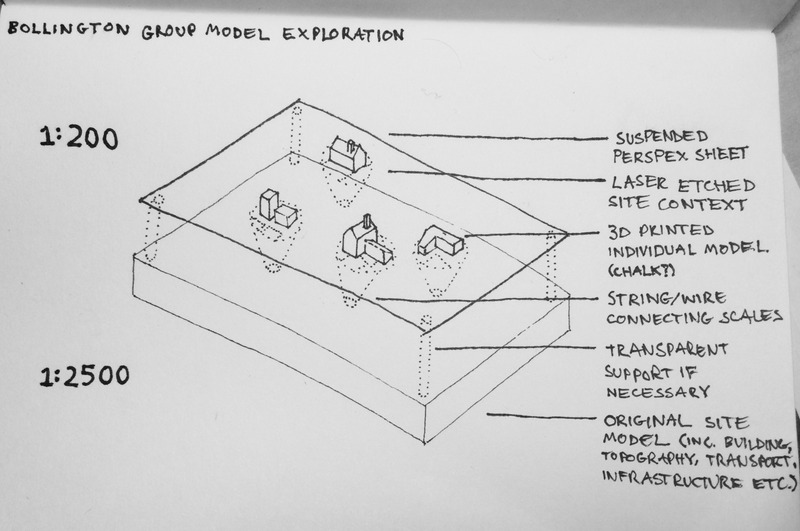 BOLLINGTON GROUP MODEL EXPLORATION
1:200
SUSPENDED
PERSPEX SHEET
LASER ETCHED
SITE CONTEXT
3D PRINTED
INDIVIDUAL MODEL.
(CHALK?)
STRING/WIRE
CONNECTING SCALES
1:2500
TRANSPARENT
SUPPORT IF
NECESSARY
ORIGINAL SITE
MODEL (INC. BUILDING,
TOPOGRAPHY, TRANSPORT,
INFRASTRUCTURE ETC.)